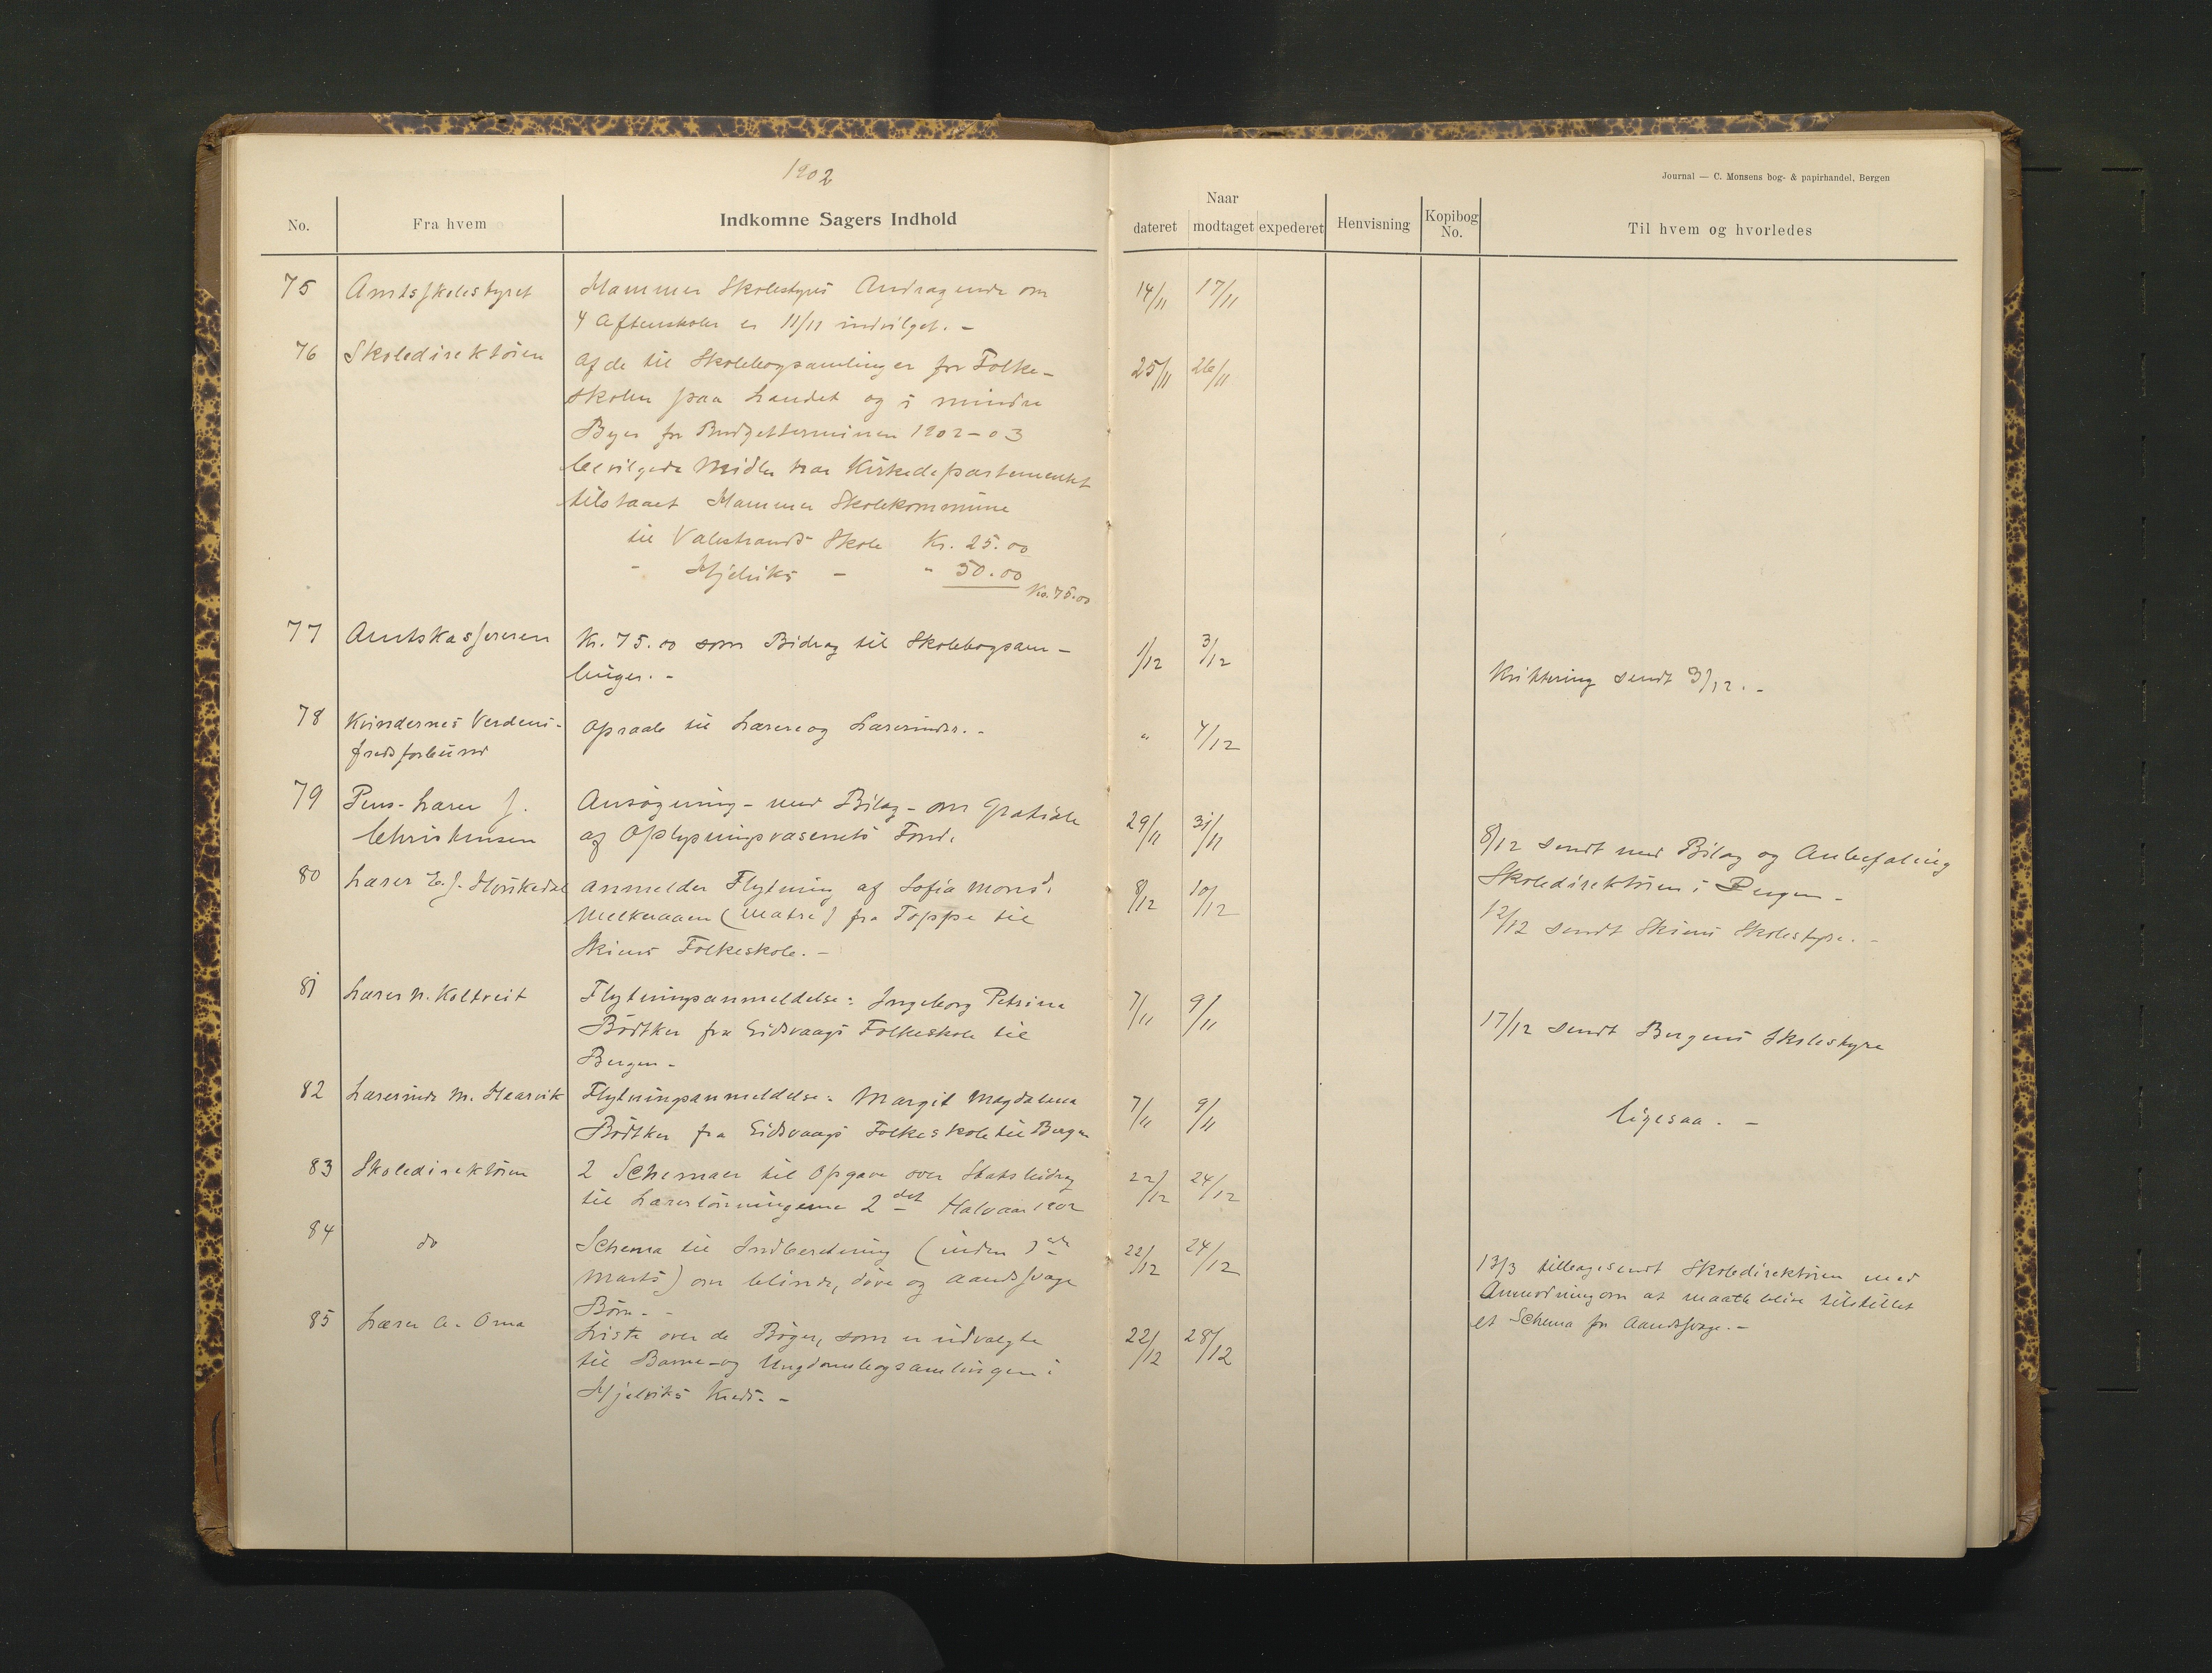 1902
Journal — C. Monsens bog- & papirhandel, Bergen
No. Fra hvem Indkomne Sagers Indhold Naar dateret modtaget expederet Henvisning Kopibog No. Til hvem og hvorledes
75 Amtsskolestyret Hammer Skolestyres Andragende om 14/11 17/11
4 Aftenskoler er 11/11 indvilget. -
76 Skoledirektören Af de til Skolebogsamlinger for Folke- 25/11 26/11
skolen paa Landet og i mindre
Byer for Budgetterminen 1902-03
bevilgede Midler har Kirkedepartementet
tilstaaet Hammer Skolekommune
til Valestrands Skole Kr. 25.00
- Hjelviks - " 50.00
Kr. 75.00
77 Amtskassereren Kr. 75.00 som Bidrag til Skolebogsam- 1/12 3/12
linger. - Kvittering sendt 3/12. -
78 Kvindernes Verdens- Opraab til Lærere og Lærerinder. - " 4/12
fredsforbund
79 Pens. Lærer J. Ansögning - med Bilag - om Gratiale 29/11 31/11
Christensen af Oplysningsvæsenets Fond. 8/12 sendt med Bilag og Anbefaling
Skoledirektören i Bergen -
80 Lærer E. J. anmelder Flytning af Sofia Monsd. 8/12 10/12
Melkeraaen (Matre) fra Toppe til 12/12 sendt Skiens Skolestyre. -
Skiens Folkeskole. -
81 Lærer N. Koltveit Flytningsanmeldelse: Ingeborg Petrine 7/11 9/11
Bödtker fra Eidsvaags Folkeskole til 17/12 sendt Bergens Skolestyre
Bergen -
82 Lærerinde M. Haarvik Flytningsanmeldelse: Margit Magdalena 7/11 9/11
Bödtker fra Eidsvaags Folkeskole til Bergen ligesaa. -
83 Skoledirektören 2 Schemaer til Opgave over Statsbidrag 22/12 24/12
til Lærerlönningerne 2det Halvaar 1902
84 do Schema til Indberetning (inden 22/12 24/12
Marts) om blinde, döve og aandssvage 13/3 tilbagesendt Skoledirektören med
Börn. - Anmodning om at maatte blive tilstillet
et Schema for Aandssvage. -
85 Lærer A. Oma Liste over de Böger, som er udvalgte 22/12 28/12
til Barne- og Ungdomsbogsamlingen i
Hjelviks Kreds. -